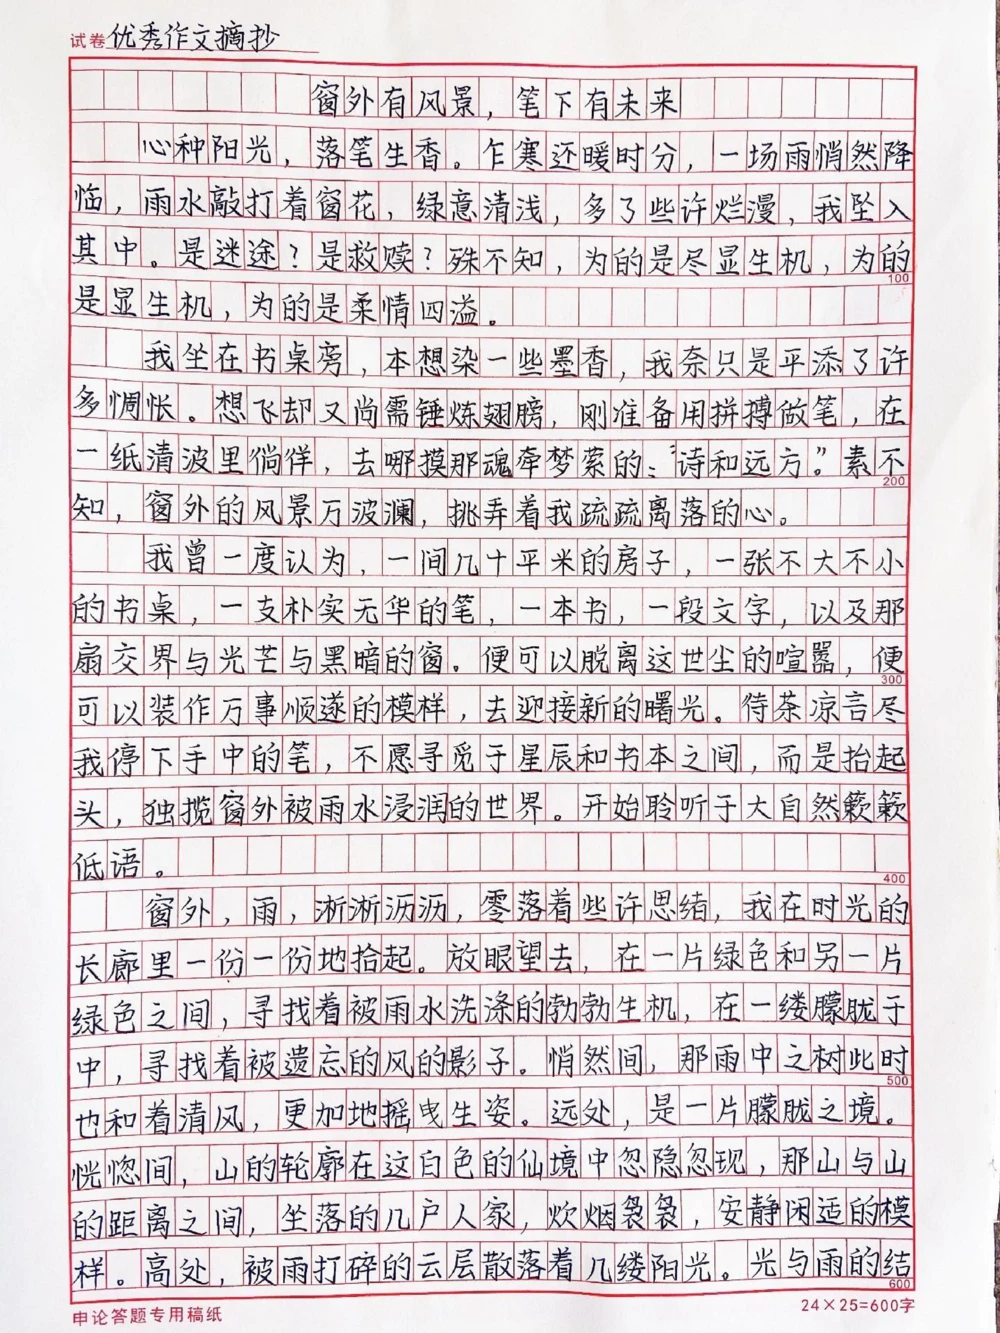 试卷 优秀作文摘抄
窗外有风景，笔下有未来
心种阳光，落笔生香。乍寒还暖时分，一场雨悄然降
临，雨水敲打着窗花，绿意清浅，多了些许烂漫，我坠入
其中。是迷途？是救赎？殊不知，为的是尽显生机，为的
100
是显生机，为的是柔情四溢。
我坐在书桌旁，本想染一些墨香，我奈只是平添了许
多惆怅。想飞却又尚需锤炼翅膀，刚准备用拼搏做笔，在
一纸清波里倘佯，去哪摸那魂牵梦萦的：“诗和远方”。素不
200
知，窗外的风景万波澜，挑弄着我疏疏离落的心。
我曾一度认为，一间几十平米的房子，一张不大不小
的书桌，一支朴实无华的笔，一本书，一段文字，以及那
扇交界与光芒与黑暗的窗。便可以脱离这世尘的喧嚣，便
300
可以装作万事顺遂的模样，去迎接新的曙光。待茶凉言尽
我停下手中的笔，不愿寻觅于星辰和书本之间，而是抬起
头，独揽窗外被雨水浸润的世界。开始聆听于大自然簌簌
低语。
400
窗外，雨，淅淅沥沥，零落着些许思绪，我在时光的
长廊里一份一份地拾起。放眼望去，在一片绿色和另一片
绿色之间，寻找着被雨水洗涤的勃勃生机，在一缕朦胧于
中，寻找着被遗忘的风的影子。悄然间，那雨中之树此时
500
也和着清风，更加地摇曳生姿。远处，是一片朦胧之境。
恍惚间，山的轮廓在这白色的仙境中忽隐忽现，那山与山
的距离之间，坐落的几户人家，炊烟袅袅，安静闲适的模
样。高处，被雨打碎的云层散落着几缕阳光。光与雨的结
600
申论答题专用稿纸 24×25=600字